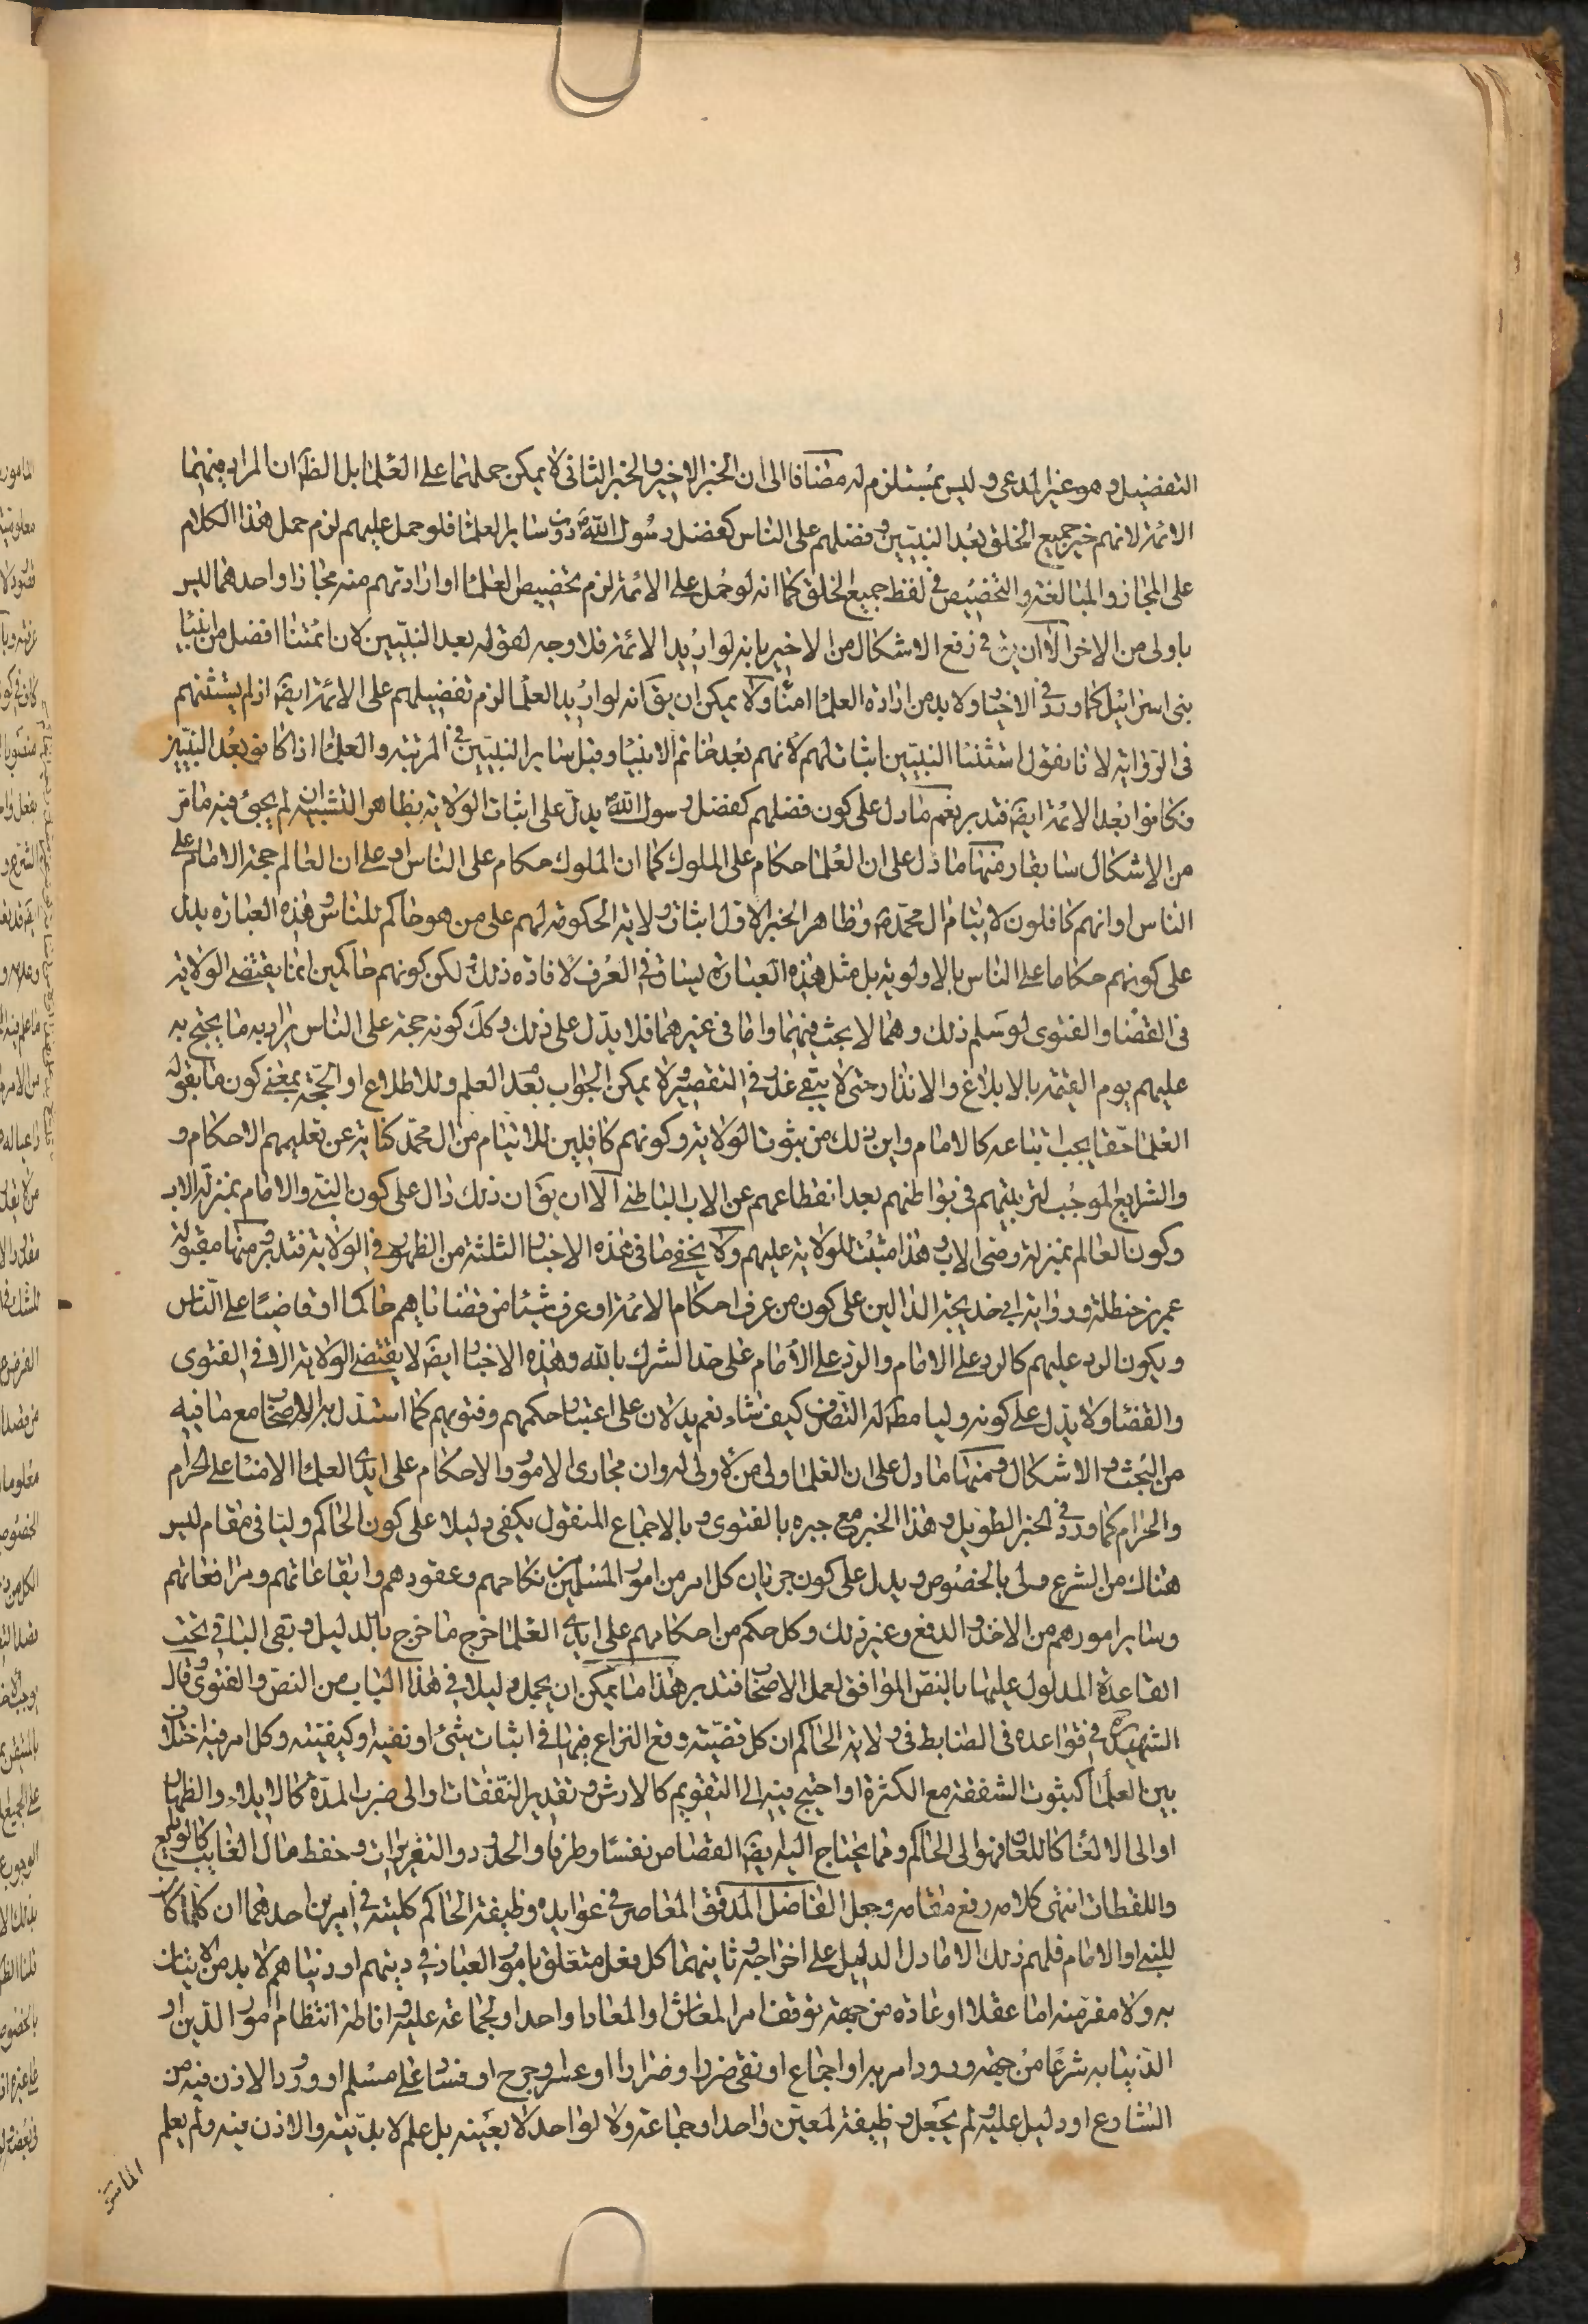 التفضيل وهو غير المدعى وليس بمستلزم له مضافا الى ان الخبر الاخير والخبر الثانى لا يمكن حملهما على العلما بل الظ ان المراد منهما
الائمة لانهم خير جميع الخلق بعد النبيين وفضلهم على الناس كفضل رسول الله ص دون ساير العلما فلو حمل عليهم لزم حمل هذا الكلام
على المجاز والمبالغة والتخصيص فى لفظ جميع الخلق كما انه لو حمل على الائمة لزم تخصيص العلما او ارادتهم منه مجازا واحدهما ليس
باولى من الاخر الا ان يق فى رفع الاشكال من الاخير بانه لو اريد الائمة فلا وجه لقوله بعد النبيين لان ائمتنا افضل من انبيا
بنى اسرائيل كما ورد فى الاخبار ولا بد من ارادة العلما امتا ولا يمكن ان يق انه لو اريد العلما لزم تفضيلهم على الائمة ايض اذ لم يستثنهم
فى الرواية لانا نقول استثنا النبيين اثبات لهم لانهم بعد خاتم الانبيا وقبل ساير النبيين فى المرتبة والعلما اذا كانو بعد النبيين
فكانوا بعد الائمة ايض فتدبر نعم ما دل على كون فضلهم كفضل رسول الله ص يدل على اثبات الولاية بظاهر التشبيه ان لم يجئ فيه ما مر
من الاشكال سابقا ومنها ما دل على ان العلما حكام على الملوك كما ان الملوك حكام على الناس او على ان العالم حجة الامام على
الناس او انهم كافلون لايتام ال محمد ص وظاهر الخبر الاول اثبات ولاية الحكومة لهم على من هو حاكم للناس وهذه العبارة يدل
على كونهم حكاما على الناس بالاولوية بل مثل هذه العبارة يساق فى العرف لافادة ذلك ولكن كونهم حاكمين انما يقتضى الولاية
فى القضا والفتوى لو سلم ذلك وهما لا بحث فيهما واما فى غيرهما فلا يدل على ذلك وكك كونه حجة على الناس يراد به ما يحتج به
عليهم يوم القيمة بالابلاغ والانذار حتى لا يبقى عذر فى التقصير ولا يمكن الجواب بعد العلم والاطلاع او الحجة بمعنى كون ما يقوله
العلما حقا يجب اتباعه كالامام واين ذلك من ثبوت الولاية وكونهم كافلين للايتام من ال محمد كناية عن تعليمهم الاحكام و
والشرايع الموجب لتربيتهم فى بواطنهم بعد انقطاعهم عن الاب الباطنى الا ان يق ان ذلك دال على كون النبى والامام بمنزلة الاب
وكون العالم بمنزلة وصى الاب وهذا مثبت للولاية عليهم ولا يخفى ما فى هذه الاخبار الثلثة من الظهور فى الولاية فتدبر ومنها مقبولة
عمر بن حنظلة ورواية ابى خديجة الدالين على كون من عرف احكام الائمة او عرف شيئا من قضاياهم حاكما او قاضيا على الناس
ويكون الرد عليهم كالرد على الامام والرد على الامام على حد الشرك بالله وهذه الاخبار ايض لا يقتضى الولاية الا فى الفتوى
والقضا ولا يدل على كونه وليا مط له التصرف كيف شاء نعم يدلان على اعتبار حكمهم وفتويهم كما استدل به الاصحاب مع ما فيه
من البحث والاشكال ومنها ما دل على ان العلما ولى من لا ولى له وان مجارى الامور والاحكام على ايدى العلما الامنا على الحرام
والحرام كما ورد فى الخبر الطويل وهذا الخبر مع جبره بالفتوى وبالاجماع المنقول يكفى دليلا على كون الحاكم وليا فى مقام ليس
هناك من الشرع ولى بالخصوص ويدل على كون جريان كل امر من امور المسلمين من نكاحهم وعقودهم وايقاعاتهم ومرافعاتهم
وساير امورهم من الاخذ والدفع وغير ذلك وكل حكم من احكامهم على ايدى العلما خرج ما خرج بالدليل وبقى الباقى تحت
القاعدة المدلول عليها بالنص الموافق لعمل الاصحاب فتدبر هذا ما يمكن ان يجعل دليلا فى هذا الباب من النص والفتوى وقال
الشهيد ره فى قواعده فى الضابط فى ولاية الحاكم ان كل قضية وقع النزاع فيها فى اثبات شئ او نفيه او كيفيته وكل امر فيه اختلاف
بين العلما كثبوت الشفعة مع الكثرة او احتيج فيه الى التقويم كالارش وتقدير النفقات او الى ضرب المدة كالايلاء والظهار
او الى الالغا كاللعان فهو الى الحاكم ومما يحتاج اليه ايض القصاص نفسا وطرفا والحدود والتعزيرات وحفظ مال الغايب كالودايع
واللقطات انتهى كلامه رفع مقامه وجعل الفاضل المدقق المعاصر فى عوايده وظيفة الحاكم كلية فى امرين احدهما ان كلما كان
للنبى او الامام فلهم ذلك الا ما دل الدليل على اخراجه وثانيهما كل فعل متعلق بامور العباد فى دينهم او دنياهم لا بد من الاتيان
به ولا مفر منه اما عقلا او عادة من جهة توقف امر المعاش او المعاد لواحد او لجماعة عليه واناطة انتظام امور الدين او
الدنيا به شرعا من جهة ورود امر به او اجماع او نفى ضرر او ضرار او عسر او حرج او فساد على مسلم او ورود الاذن فيه من
الشارع او دليل عليه ولم يجعل وظيفة لمعين واحد او جماعة ولا لواحد لا بعينه بل علم لا بدية والاذن فيه ولم يعلم